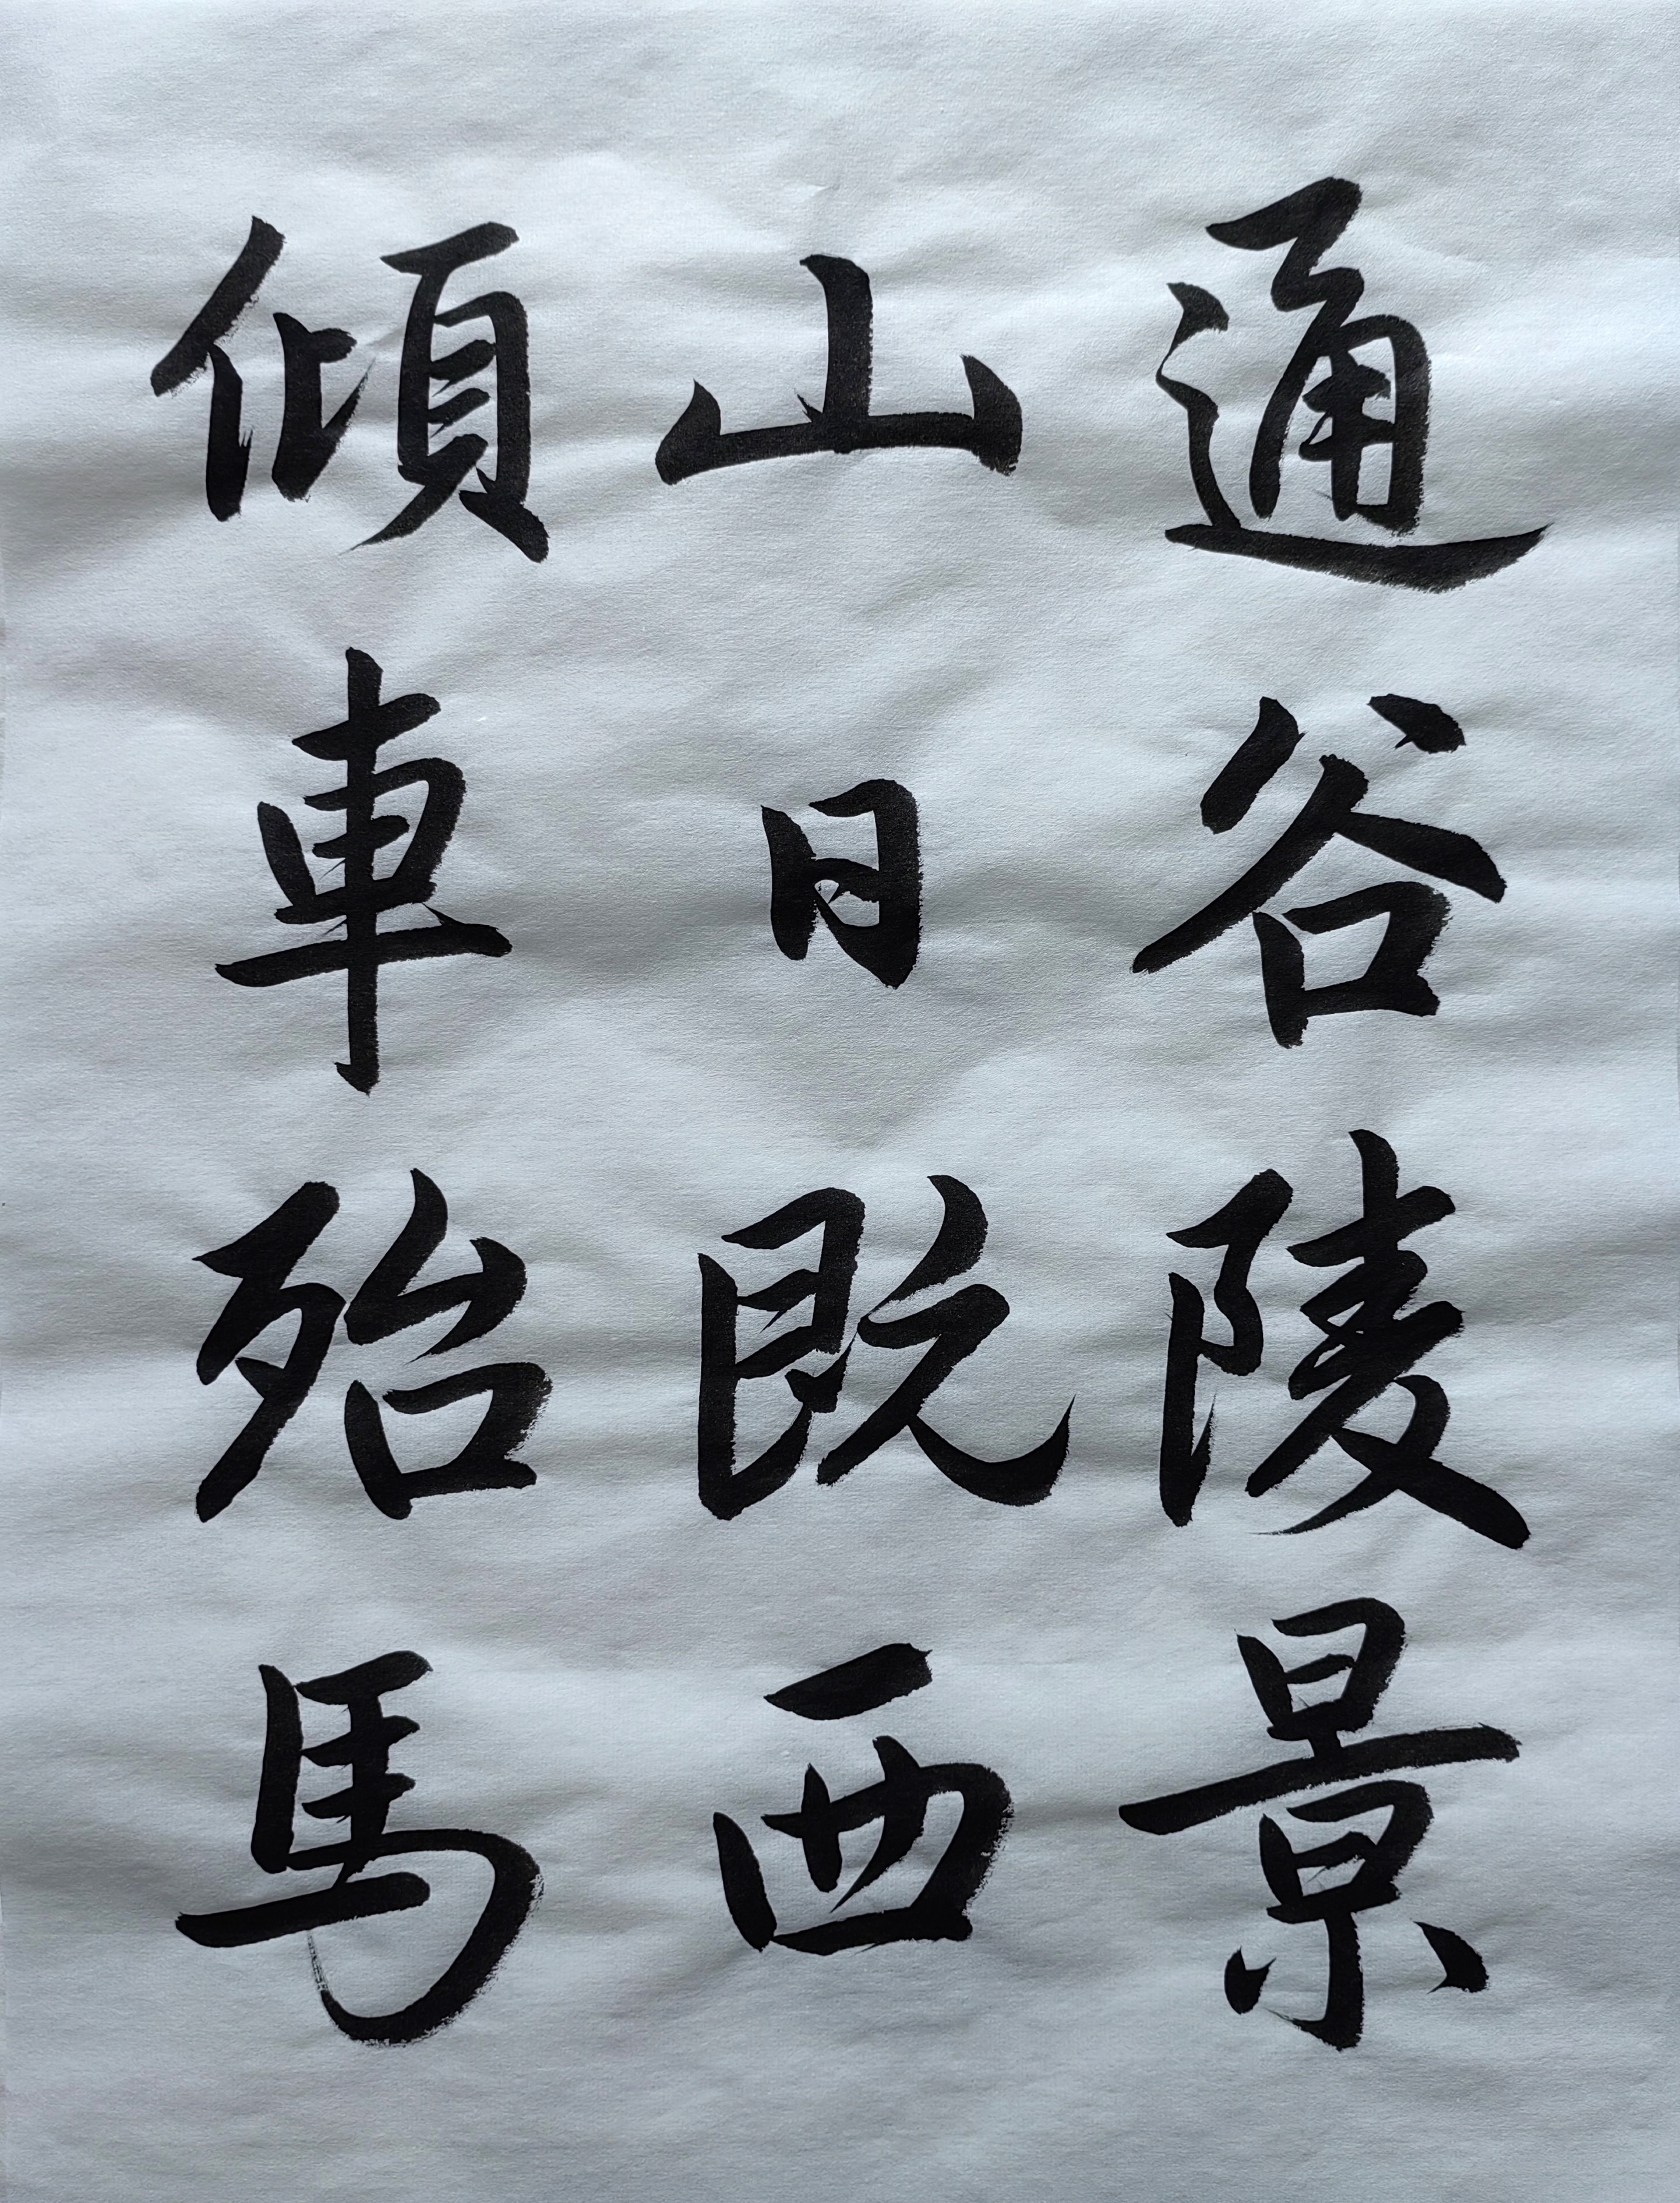 通谷陵景
山日既西
傾車殆馬